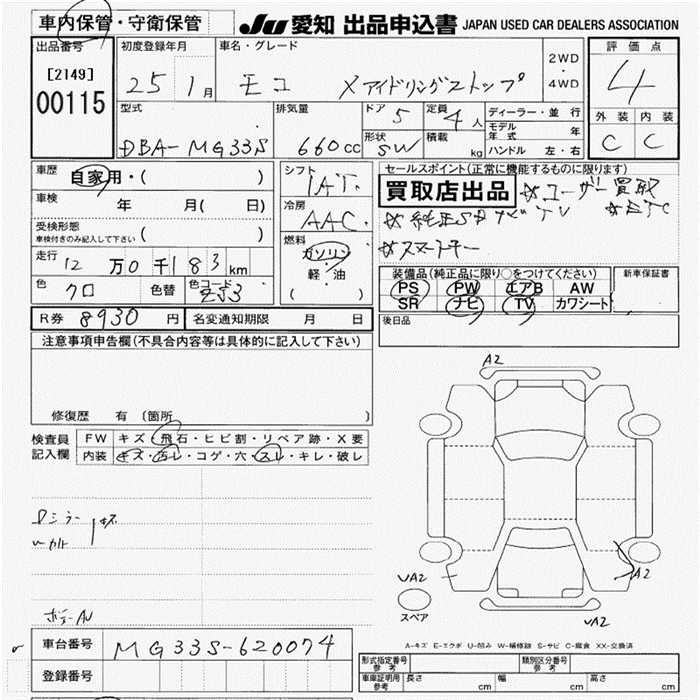 車内保管・守衛保管
JU 愛知 出品申込書 JAPAN USED CAR DEALERS ASSOCIATION
出品番号 初度登録年月 車名・グレード 2WD・4WD 評価点
[2149]
00115
25 1月 モコ Xアイドリングストップ 4
型式 排気量 ドア 5 定員 4人 ディーラー・並行
モデル年式 年
形状 SW 積載 kg ハンドル 左・右
外装 内装
C C
DBA-MG33S 660cc
車歴 自家用・( )
シフト IAT.
セールスポイント(正常に機能するものに限ります)
買取店出品 ※ユーザー買取
※純正SDナビTV ※ETC
※スマートキー
車検 年 月( 日)
冷房 AAC.
受検形態
車検付きのみ記入して下さい ( )
燃料 ガソリン
軽・油
( )
走行 12万0千183km
色 クロ 色替 色コード ZJ3
装備品(純正品に限り○をつけてください) 新車保証書
PS PW エアB AW
SR ナビ TV カワシート
R券 8930円 名変通知期限 月 日
後日品
注意事項申告欄(不具合内容等は具体的に記入して下さい)
修復歴 有(箇所 )
検査員記入欄
FW キズ・飛石・ヒビ割・リペア跡・X要
内装 キズ・汚レ・コゲ・穴・スレ・キレ・破レ
A2
Dミラー
キズ
A2
VA2
スペア
VA2
A-キズ E-エクボ U-凹み W-補修跡 S-サビ C-腐食 XX-交換済
車台番号 MG33S-620074
登録番号
形式指定番号 参考 類別区分番号 参考
車庫証明用 参考 長さ cm 幅 cm 高さ cm